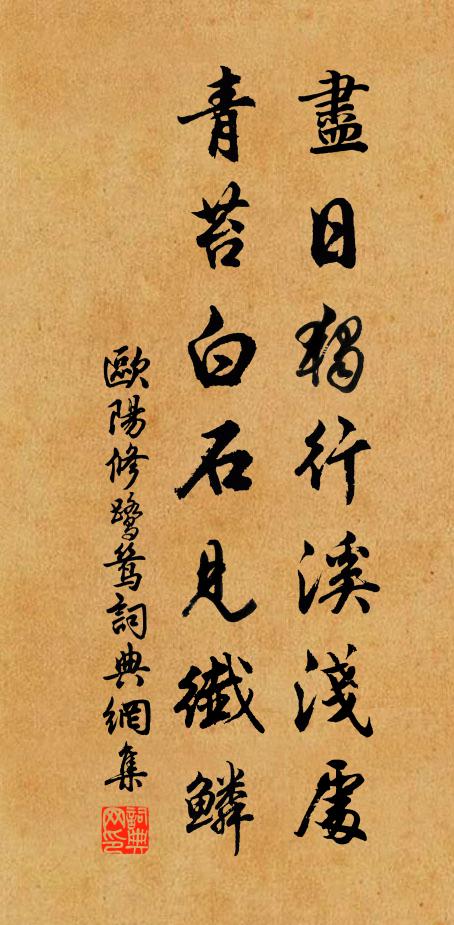 盡日獨行溪淺處
青苔白石見纖鱗
歐陽修鷺鷥詞典網集
詞典網印